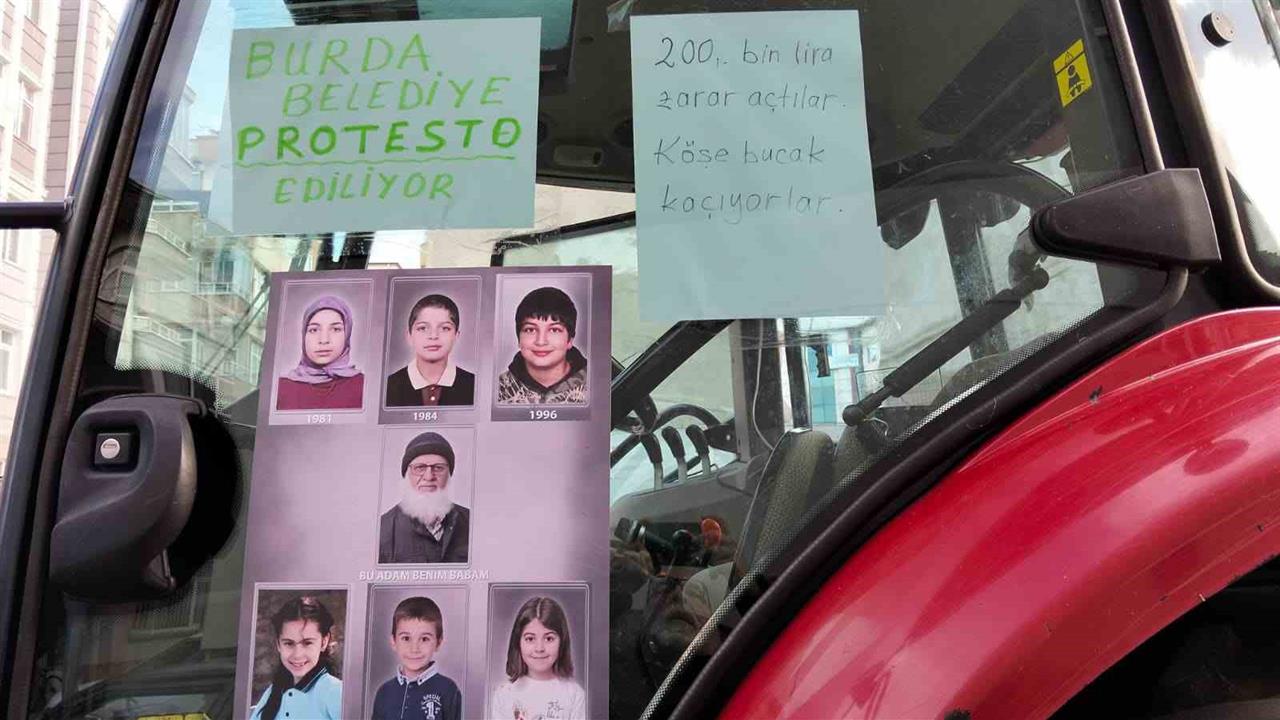 BURDA
BELEDİYE
PROTESTO
EDİLİYOR
200,. bin lira
zarar açtılar.
Köşe bucak
kaçıyorlar.
1981
1984
1996
BU ADAM BENİM BABAM
SPECIAL
1